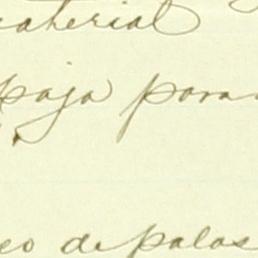 material
paja para
eo de palas